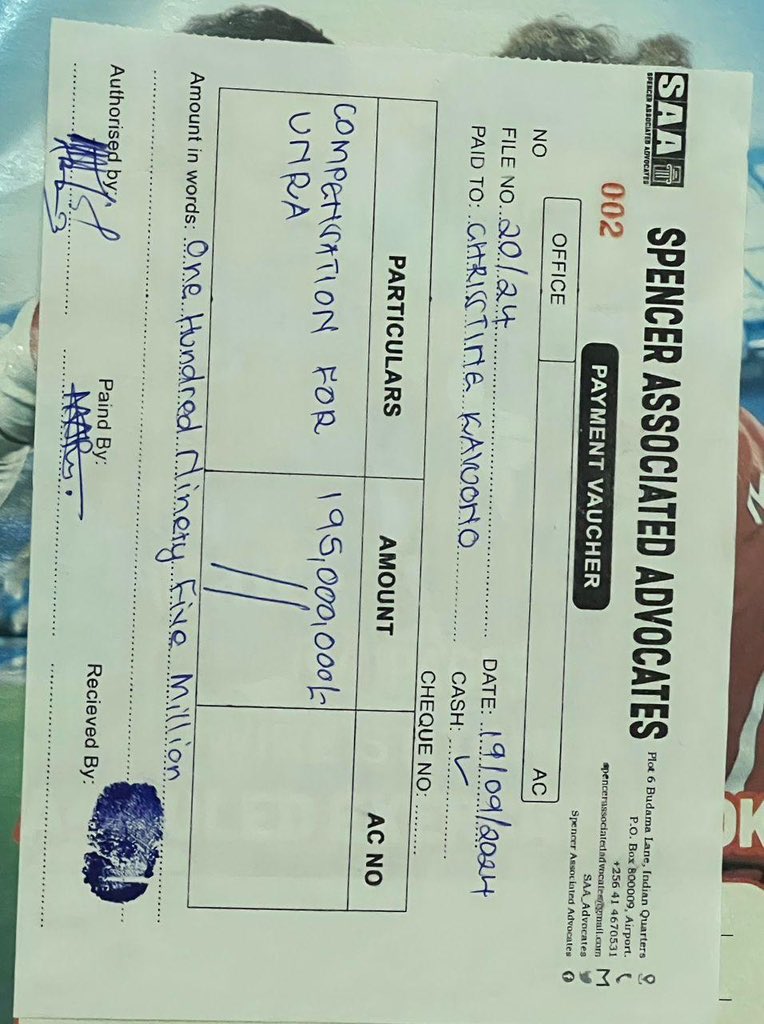 SAA
SPENCER ASSOCIATED ADVOCATES
SPENCER ASSOCIATED ADVOCATES
Plot 6 Budama Lane, Indian Quarters
P.O. Box 800009, Airport.
+256 41 4670531
spencerassociatedadvocates@gmail.com
SAA_Advocates
Spencer Associated Advocates
002
PAYMENT VAUCHER
NO
OFFICE
AC
FILE NO. 20/24
DATE: 19/09/2024
PAID TO: CHRISTINE
CASH: ✓
CHEQUE NO:
PARTICULARS AMOUNT AC NO
COMPENSATION FOR 195,000,000/=
UNRA
Amount in words: One Hundred Ninety Five Million
Authorised by:
Paind By:
Recieved By:
OK